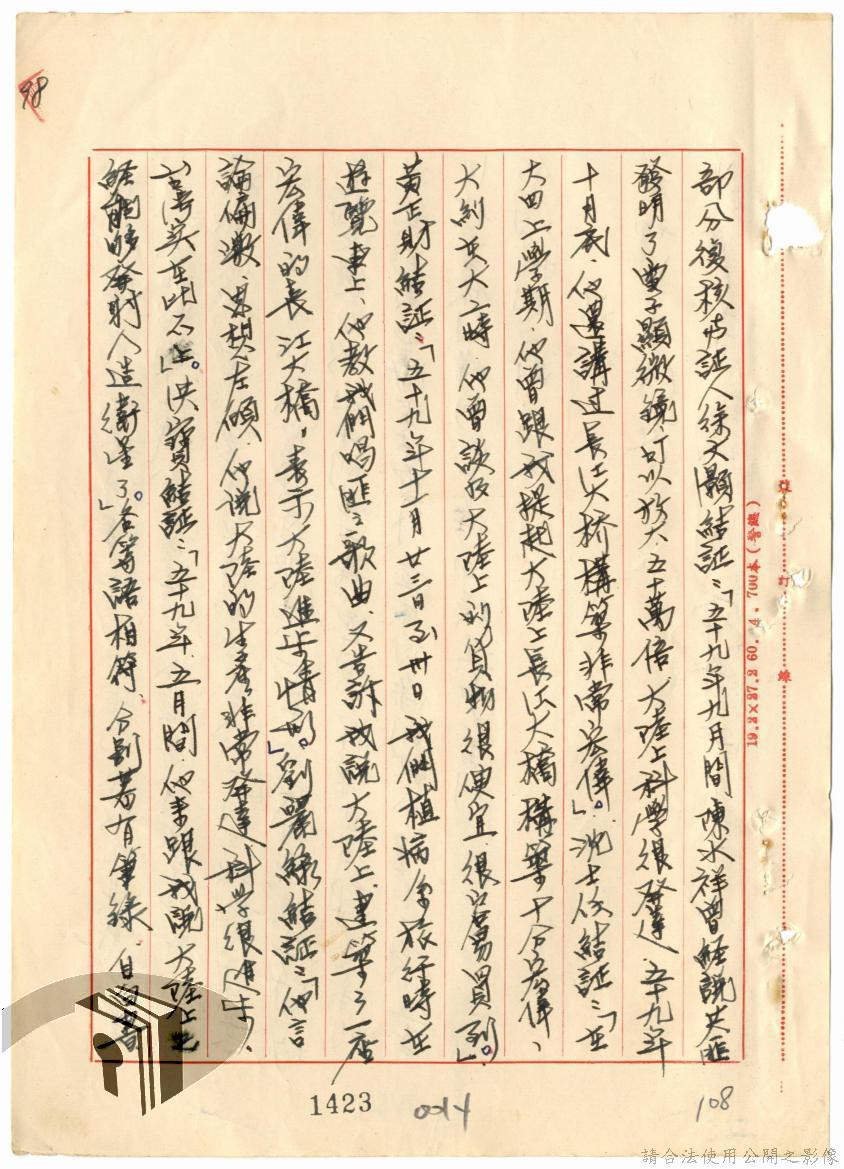 部分復核与証人徐文灝結証：「五十九年九月間陳水祥曾經說共匪
發明了電子顯微鏡，可以放大五十萬倍，大陸上科學很發達，五十九年
十月底，他還講过長江大桥構築非常宏偉」。沈士俊結証：「在
大四上學期，他曾跟我提起大陸上長江大橋構築十分宏偉、
大約在大二時，他曾談及大陸上的貨物很便宜，很容易買到」。
黃正財結証：「五十九年十一月廿三日至卅日我們植病系旅行時在
遊覽車上，他教我們唱匪之歌曲，又告訴我說大陸上建築了一座
宏偉的長江大橋，表示大陸進步情形」。劉麗綠結証：「他言
論偏激、思想左傾、他說大陸的生產非常發達科學很進步、
台灣英在比不上」。洪寶結証：「五十九年五月間，他来跟我說大陸上已
經能夠發射人造衛星了」。各等語相符、分別著有筆錄、自白書
裝
訂
線
19.2×27.2 60.4.700本（普鍵）
98
1423
0014
108
請合法使用公開之影像